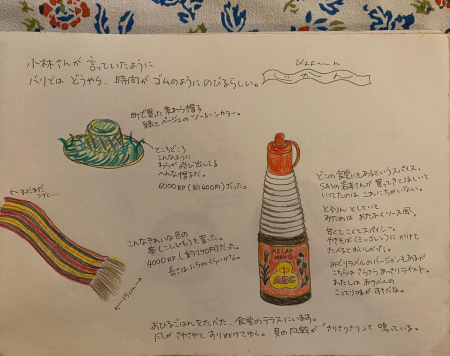 小林さんが 言っていたように
バリとは どうやら、時間が ゴムのように のびるらしい。
じかん
町で買った 麦わら帽子
緑とベージュの ツートーンカラー。
ところどころ
こんなふうに
わらが 飛び出してる
へんな帽子だ。
6000 RP (約400円)だった。
こんなきれいな色の
帯(こしひも)を買った。
4000 RP (約270円)だった。
長さは 1.5mくらいかな。
15cm
どこの食堂にもあるというスパイス。
買ってきてほしいと
いってたのは これにちがいない。
とろりんとしていて
みためは おたふくソース風。
甘くて こくて スパイシー。
やきそば(ミーゴレン)に かけて
たべると おいしかった。
みどりラベルのバージョンもあるが
こちらは さらさら
わたしは 赤ラベルの
こってり味が すきだな。
KECAP
MANIS
ABC
おひるごはんをたべた、食堂のテラスにいます。
風が さわさわと 通りぬけてゆく。貝の風鈴が 「さりさりさり」と 鳴っている。